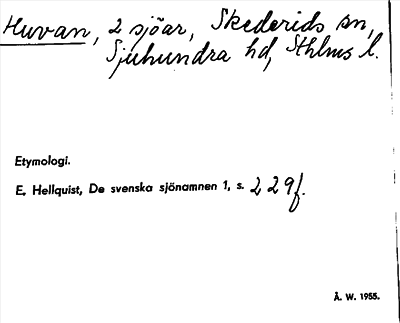 Huvan, 2 sjöar, Skederids sn,
Sjuhundra hd, Sthlms l.
Etymologi.
E. Hellquist, De svenska sjönamnen 1, s. 229f.
Å. W. 1955.